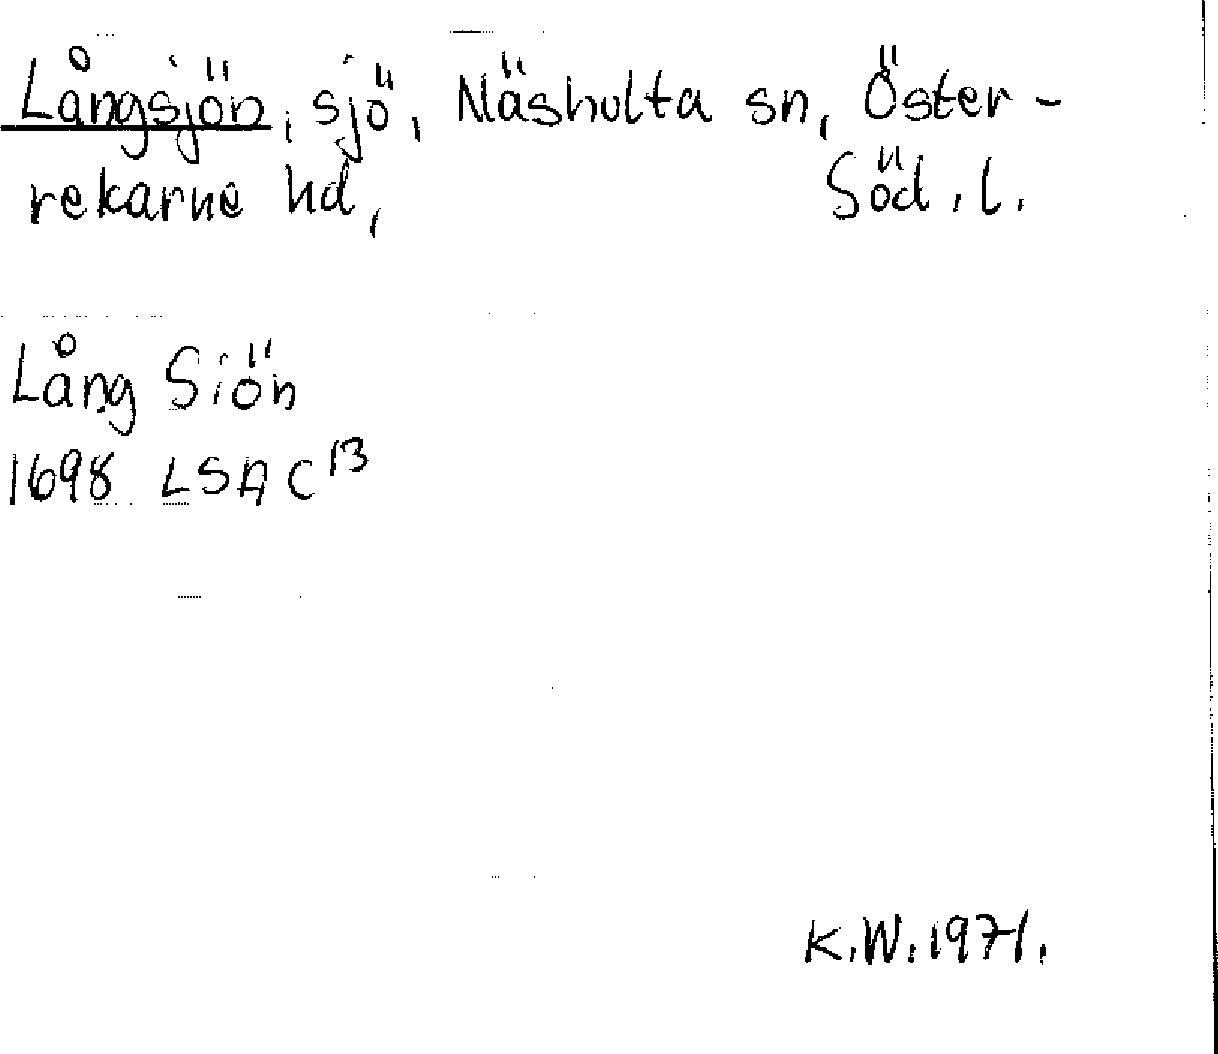 Långsjön, sjö, Näshulta sn, Öster-
rekarne hd, Söd. l.
Lång Siön
1698 LSA C13
K.W. 1971.